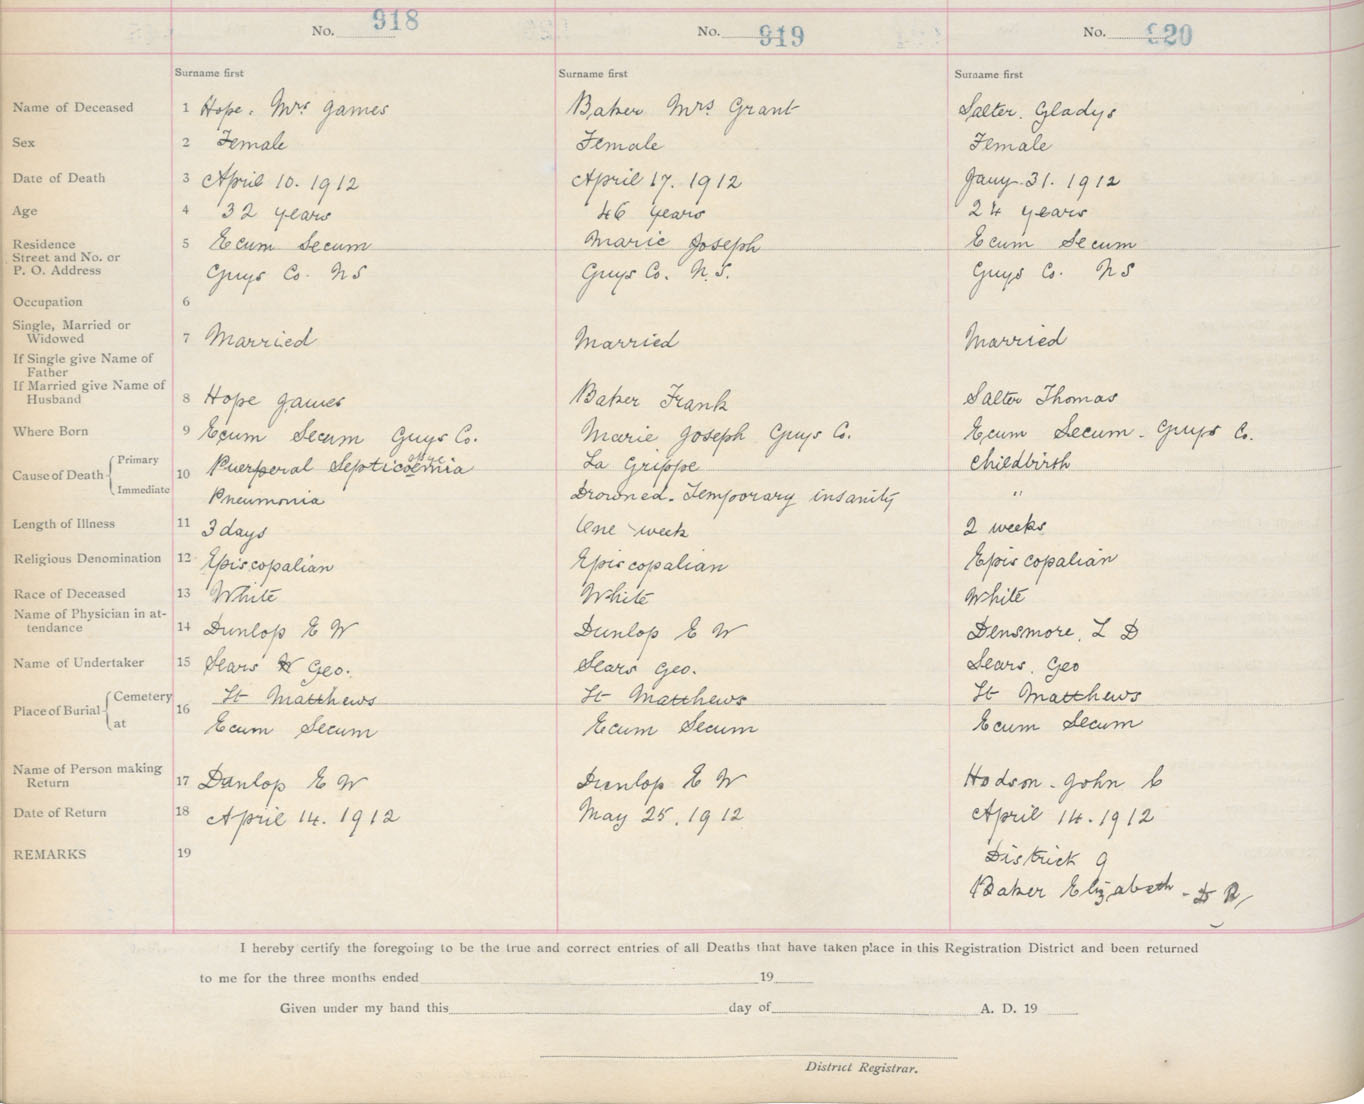 No. 918 No. 919 No. 920
Surname first Surname first Surname first
Name of Deceased 1 Hope. Mrs James Baker Mrs Grant Salter. Gladys
Sex 2 Female Female Female
Date of Death 3 April 10. 1912 April 17. 1912 Jany. 31. 1912
Age 4 32 years 46 years 24 years
Residence 5 Ecum Secum Marie Joseph Ecum Secum
Street and No. or
P. O. Address Guys Co. N S Guys Co. N.S. Guys Co. N S
Occupation 6
Single, Married or
Widowed 7 Married Married Married
If Single give Name of
Father
If Married give Name of
Husband 8 Hope James Baker Frank Salter Thomas
Where Born 9 Ecum Secum Guys Co. Marie Joseph Guys Co. Ecum Secum - Guys Co.
Cause of Death Primary 10 Puerperal Septicaemia La Grippe Childbirth
Immediate Pneumonia Drowned - Temporary insanity "
Length of Illness 11 3 days One week 2 weeks
Religious Denomination 12 Episcopalian Episcopalian Episcopalian
Race of Deceased 13 White White White
Name of Physician in at-
tendance 14 Dunlop E W Dunlop E W Densmore. L D
Name of Undertaker 15 Sears Geo. Sears Geo. Sears. Geo
Place of Burial Cemetery 16 St Matthews St Matthews St Matthews
at Ecum Secum Ecum Secum Ecum Secum
Name of Person making
Return 17 Dunlop E W Dunlop E W Hodson. John C
Date of Return 18 April 14. 1912 May 25. 1912 April 14. 1912
REMARKS 19 Districk 9
Baker Elizabeth - D R
I hereby certify the foregoing to be the true and correct entries of all Deaths that have taken place in this Registration District and been returned
to me for the three months ended 19
Given under my hand this day of A. D. 19
District Registrar.